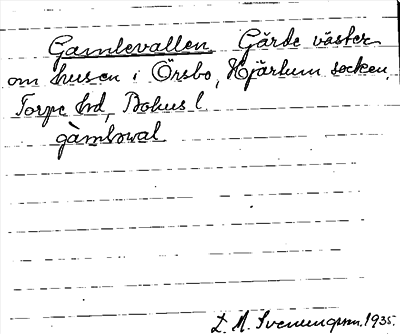 Gamlevallen Gärde väster
om husen i Örsbo, Hjärtum socken,
Torpe hd, Bohus l
gàmləval
L. M. Svenungsson. 1935.